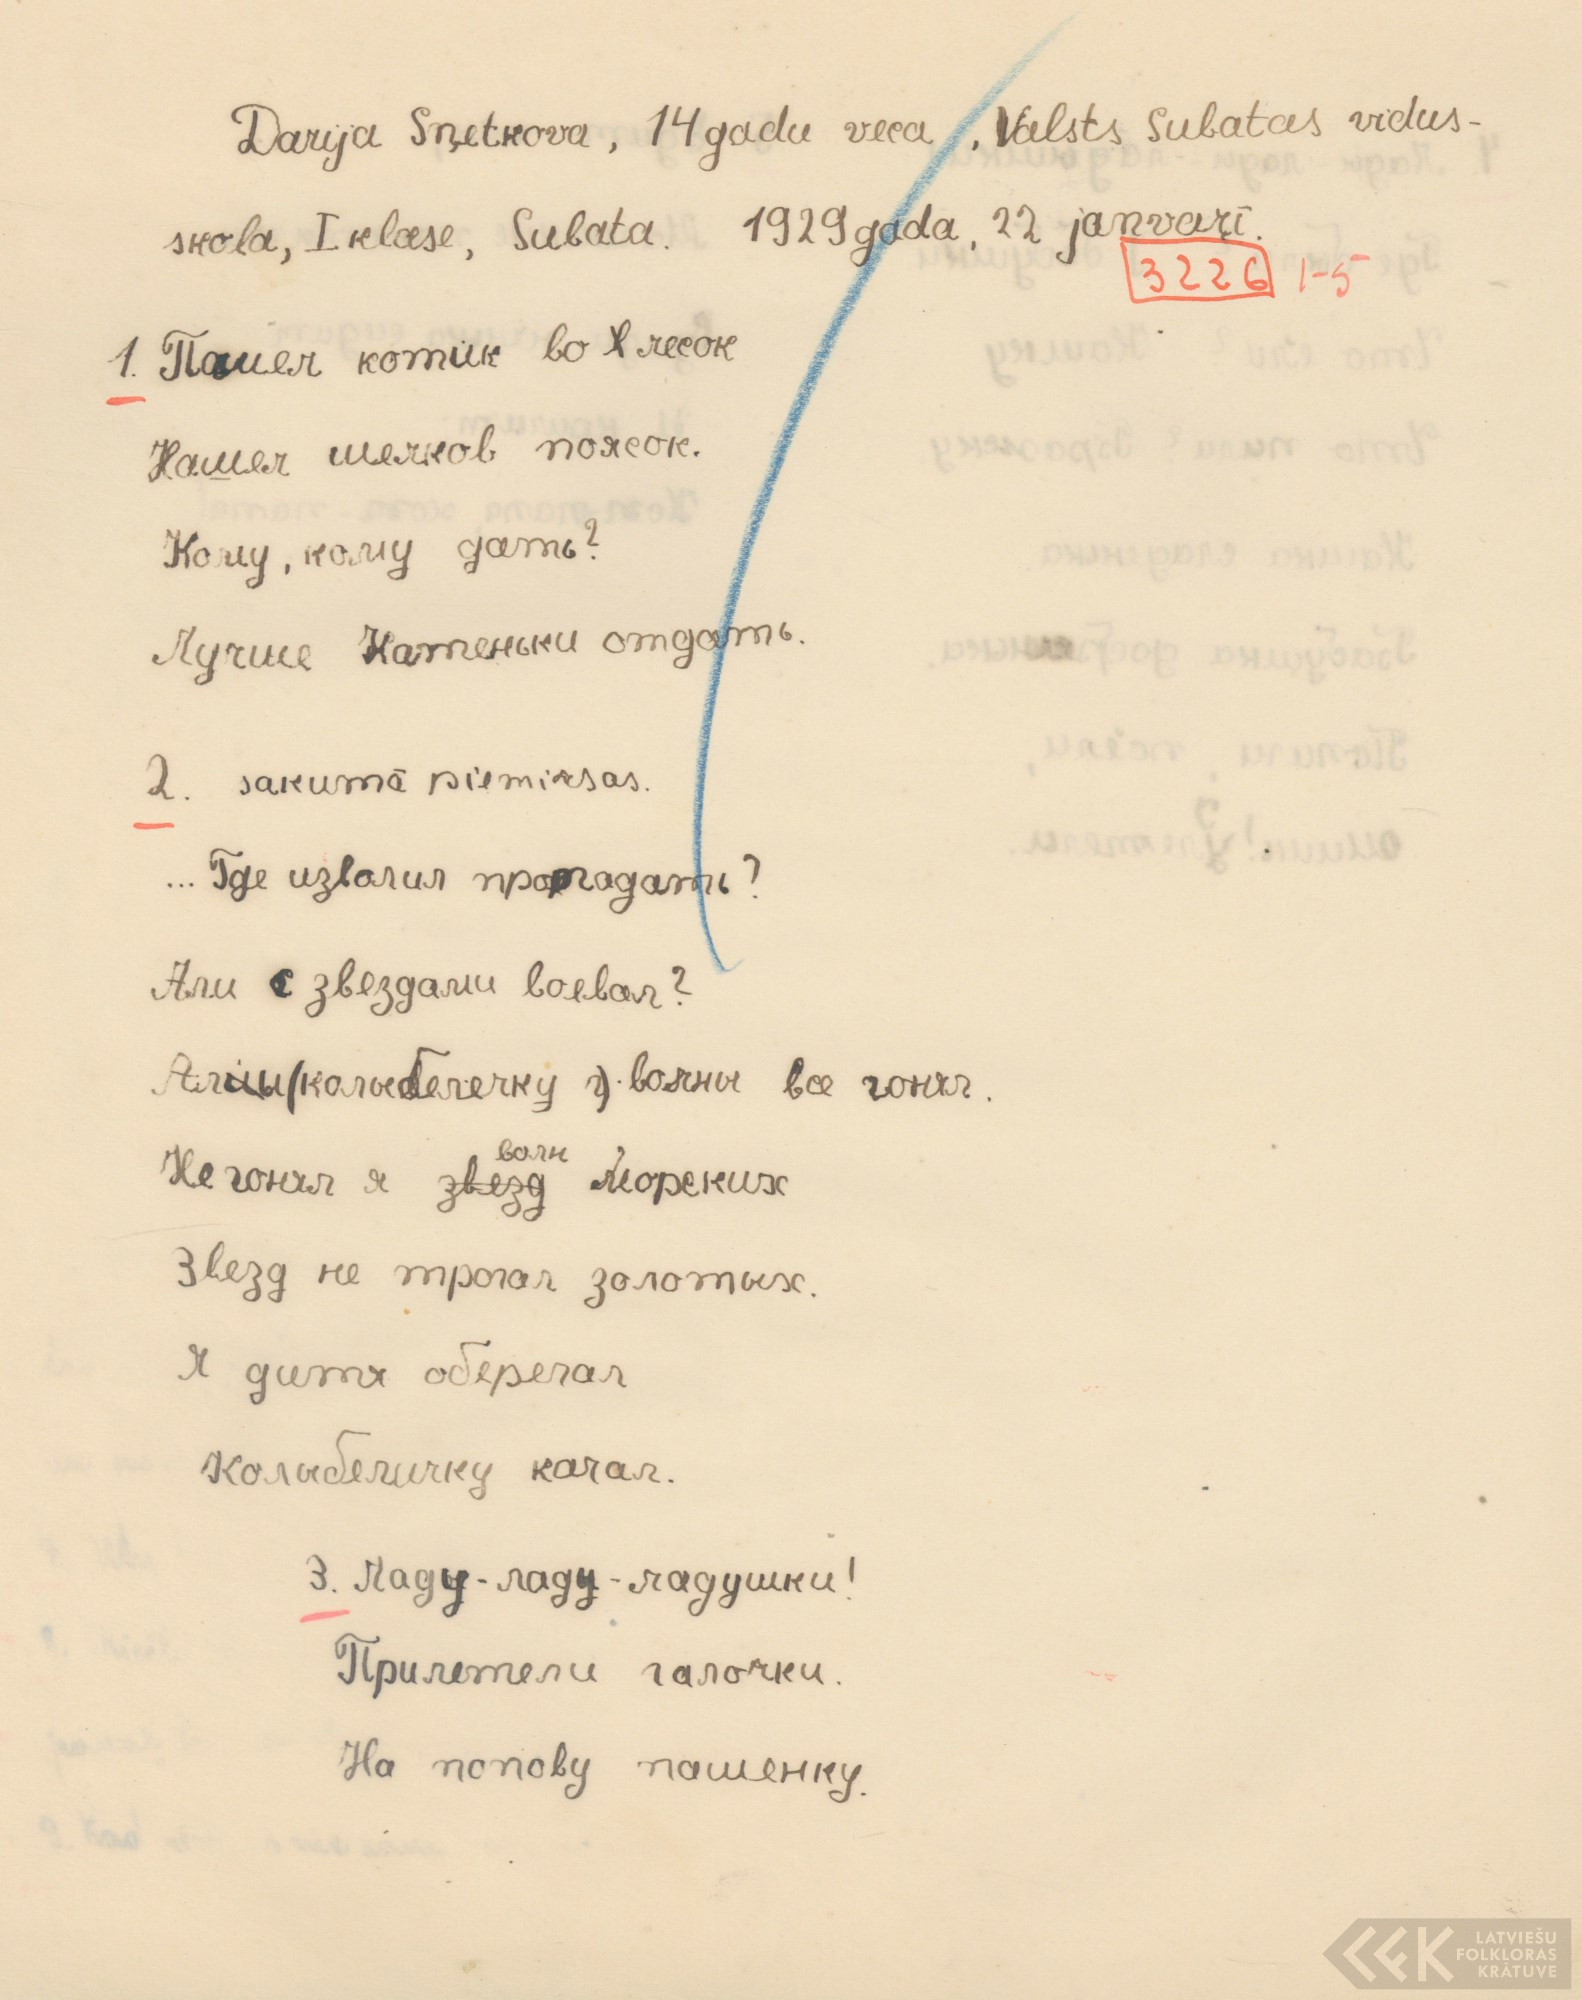 Darija Sņetkova, 14 gadu veca, Valsts Subatas vidus-
skola, I klase, Subata. 1929 gada, 22 janvarī.
3226 1-5
1. Пошел котик во лесок
Нашел шелков поясок.
Кому, кому дать?
Лучше Катеньки отдать.
2. sakumā piemirsas.
... Где изволил пропадать?
Али с звездами воевал?
Али (колыбелечку?) волны все гонял.
волн
Не гонял я звезд морских
Звезд не трогал золотых.
Я дитя оберегал
Колыбеличку качал.
3. Ладу-ладу-ладушки!
Прилетели галочки.
На попову пашенку.
LATVIEŠU
FOLKLORAS
KRĀTUVE